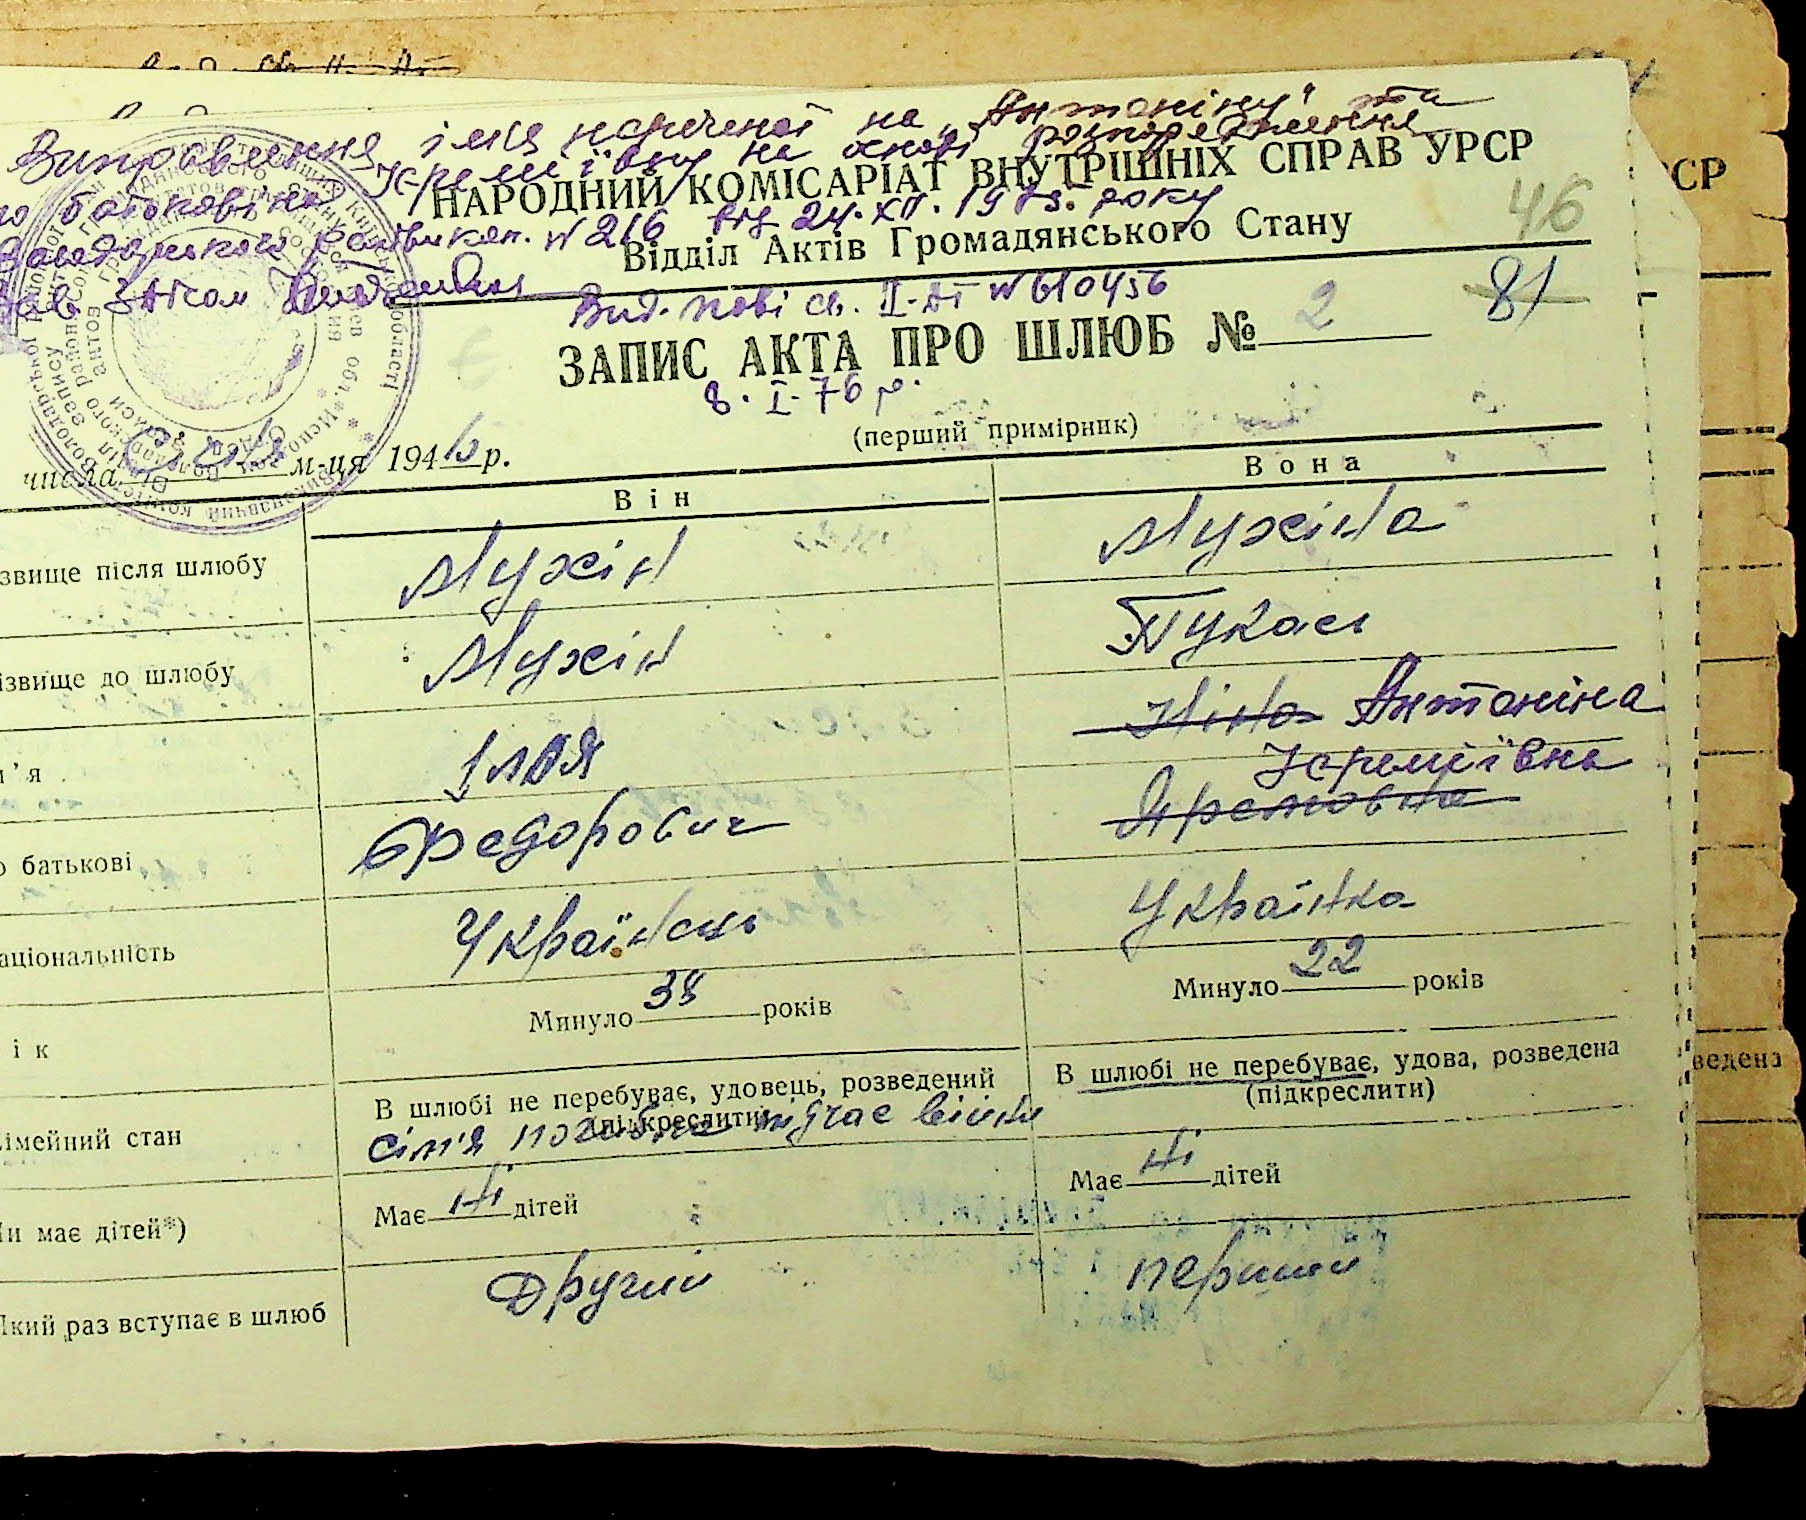 Виправлення імʼя нареченої на „Антоніну" та
по батькові на Ієреміївну на основі розпорядження
Володарського райвикон. №216 від 24.XII.1975 року
Зав. ЗАГСом
НАРОДНИЙ КОМІСАРІАТ ВНУТРІШНІХ СПРАВ УРСР
46
Відділ Актів Громадянського Стану
Вид. повт. св. II- №610456
81
ЗАПИС АКТА ПРО ШЛЮБ № 2
8.I-76 р.
(перший примірник)
числа м-ця 194 р.
Він Вона
звище після шлюбу Мухін Мухіна
ізвище до шлюбу Мухін Пукась
м'я Ілля Ніна Антоніна
Ієреміївна
о батькові Федорович Яремовна
аціональність Українець Українка
ік Минуло 38 років Минуло 22 років
імейний стан В шлюбі не перебуває, удовець, розведений В шлюбі не перебуває, удова, розведена
(підкреслити) (підкреслити)
сім'я під час війни
и має дітей*) Має ні дітей Має ні дітей
кий раз вступає в шлюб Другий перший
СР
ведена